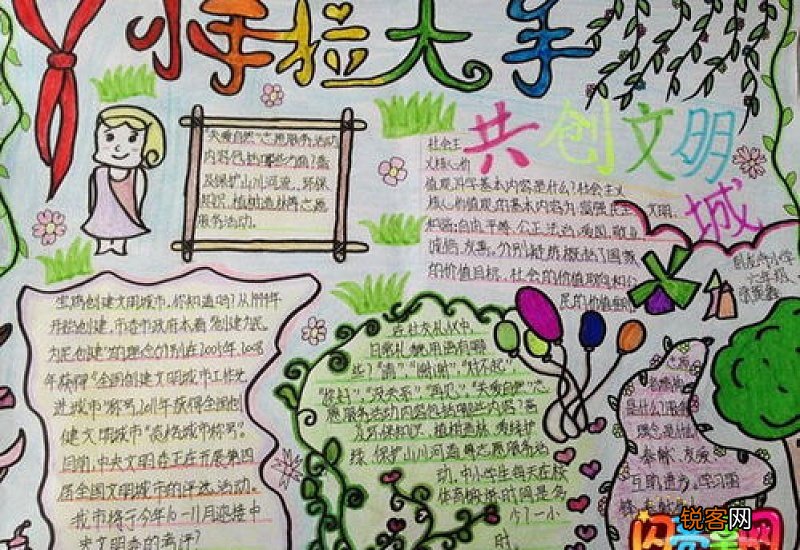 小手拉大手
共创文明城
"关爱自然"志愿服务活动
内容包括哪些方面?普
及保护山川河流、环保
知识、植树造林等志愿
服务活动。
社会主
义核心价
值观的基本内容是什么?社会主义
核心价值观的基本内容为:富强、民主、文明、
和谐;自由、平等、公正、法治;爱国、敬业、
诚信、友善。分别
国家
的价值目标、社会的价值取向和公
民的价值
小学
宝鸡创建文明城市,你知道吗?从1999年
开始创建,市委市政府本着"创建为民,
为民创建"的理念分别在2005年、2008
年获得"全国创建文明城市工作先
进城市"称号,2011年获得全国创
建文明城市"资格城市称号"。
目前,中央文明委正在开展第四
届全国文明城市的评选活动。
我市将于今年10-11月迎接中
央文明委的考评?
在社交礼仪中,
日常礼貌用语有哪
些?"请","谢谢","对不起",
"您好","没关系""再见","关爱自然"志
愿服务活动内容包括哪些内容?普
及环保知识,植树造林,
绿,保护山川河流等志愿服务活
动,中小学生每天在校
体育锻炼时间是多
少?一小
时
志愿
是什么?
理念是什么
奉献、友爱、
互助、进步。学习雷
锐客网